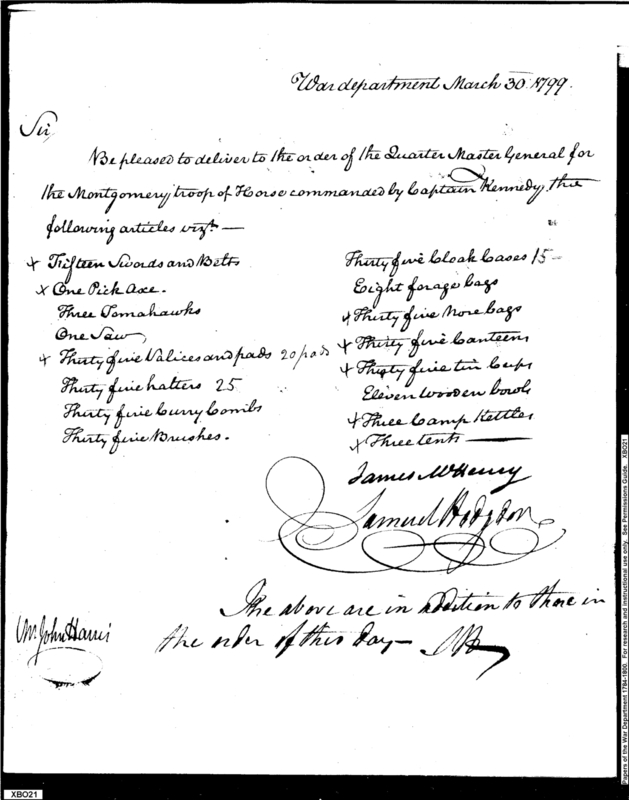 War department March 30 1799.
Sir,
Be pleased to deliver to the order of the Quarter Master General for
the Montgomery troop of Horse commanded by Captain Kennedy, the
following articles vizt. —
+ Fifteen Swords and Belts
x One Pick Axe.
Three Tomahawks
One Saw
+ Thirty five Valices and pads 20 pads
Thirty five halters 25
Thirty five Curry Combs
Thirty five Brushes.
Thirty five Cloak Cases 15 —
Eight forage bags
+ Thirty five Nose bags
+ Thirty five Canteens
+ Thirty five tin Cups
Eleven wooden bowls
+ Three Camp Kettles
+ Three tents —
James McHenry
Samuel Hodgdon
The above are in addition to those in
the order of this day —
Mr. John Harris
XBO21
Papers of the War Department 1784-1800. For research and instructional use only. See Permissions Guide. XBO21